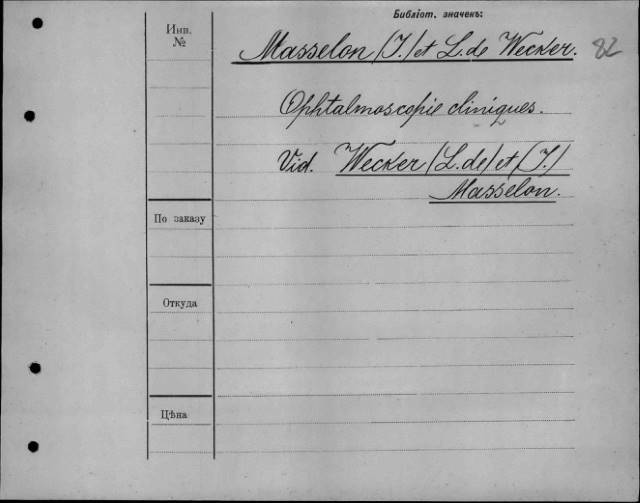 Библіот. значекъ:
Инв.
№
Masselon (J.) et L. de Wecker.
82
Ophtalmoscopie cliniques.
Vid. Wecker (L. de) et (J.)
Masselon.
По заказу
Откуда
Цѣна